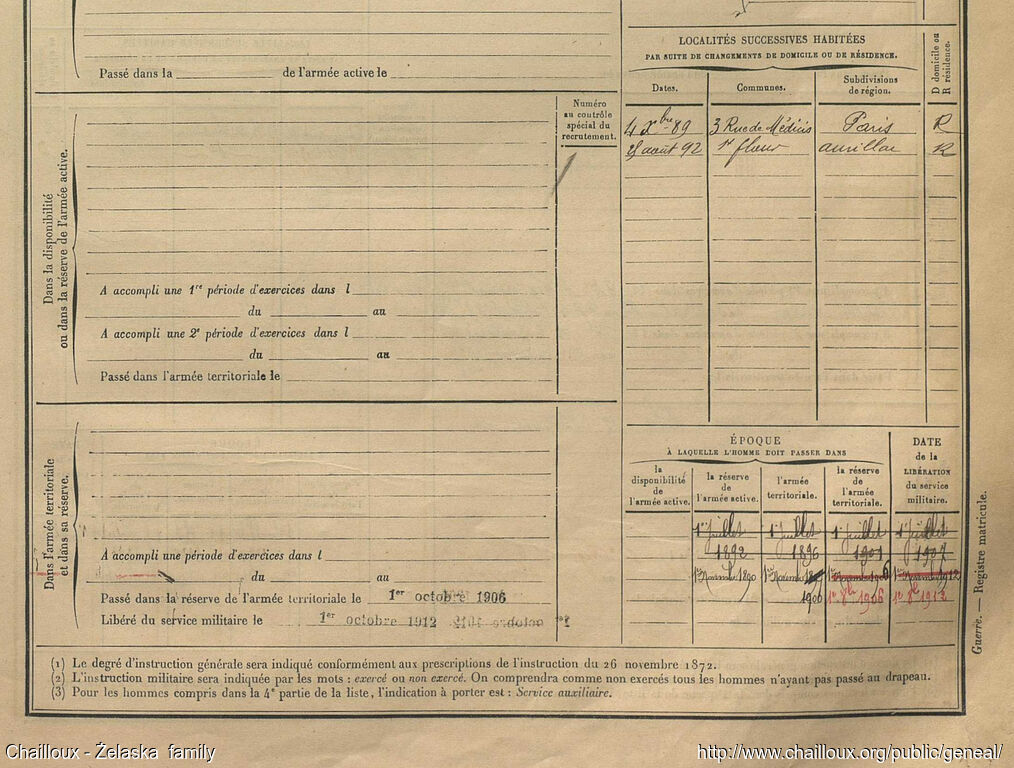 Passé dans la de l'armée active le
Dans la disponibilité
ou dans la réserve de l'armée active.
Numéro
au contrôle
spécial du
recrutement.
A accompli une 1re période d'exercices dans l
du au
A accompli une 2e période d'exercices dans l
du au
Passé dans l'armée territoriale le
Dans l'armée territoriale
et dans sa réserve.
A accompli une période d'exercices dans l
du au
Passé dans la réserve de l'armée territoriale le 1er octobre 1906
Libéré du service militaire le 1er octobre 1912
LOCALITÉS SUCCESSIVES HABITÉES
PAR SUITE DE CHANGEMENTS DE DOMICILE OU DE RÉSIDENCE.
D domicile ou
R résidence.
Dates. Communes. Subdivisions
de région.
4 Xbre 89 3 Rue de Médicis Paris R
août 92 St flour aurillac R
ÉPOQUE
À LAQUELLE L'HOMME DOIT PASSER DANS
DATE
de la
LIBÉRATION
du service
militaire.
la
disponibilité
de
l'armée active.
la réserve
de
l'armée active.
l'armée
territoriale.
la réserve
de
l'armée
territoriale.
1er juillet 1er juillet 1er juillet 1er juillet
1892 1896 1901 1907
1er Novembre 1890 1er Novembre 1er Novembre 1906 1er Novembre 1912
1900 1er 8bre 1906 1er 8bre 1912
Guerre. — Registre matricule.
(1) Le degré d'instruction générale sera indiqué conformément aux prescriptions de l'instruction du 26 novembre 1872.
(2) L'instruction militaire sera indiquée par les mots : exercé ou non exercé. On comprendra comme non exercés tous les hommes n'ayant pas passé au drapeau.
(3) Pour les hommes compris dans la 4e partie de la liste, l'indication à porter est : Service auxiliaire.
Chailloux - Żelaska family
http://www.chailloux.org/public/geneal/